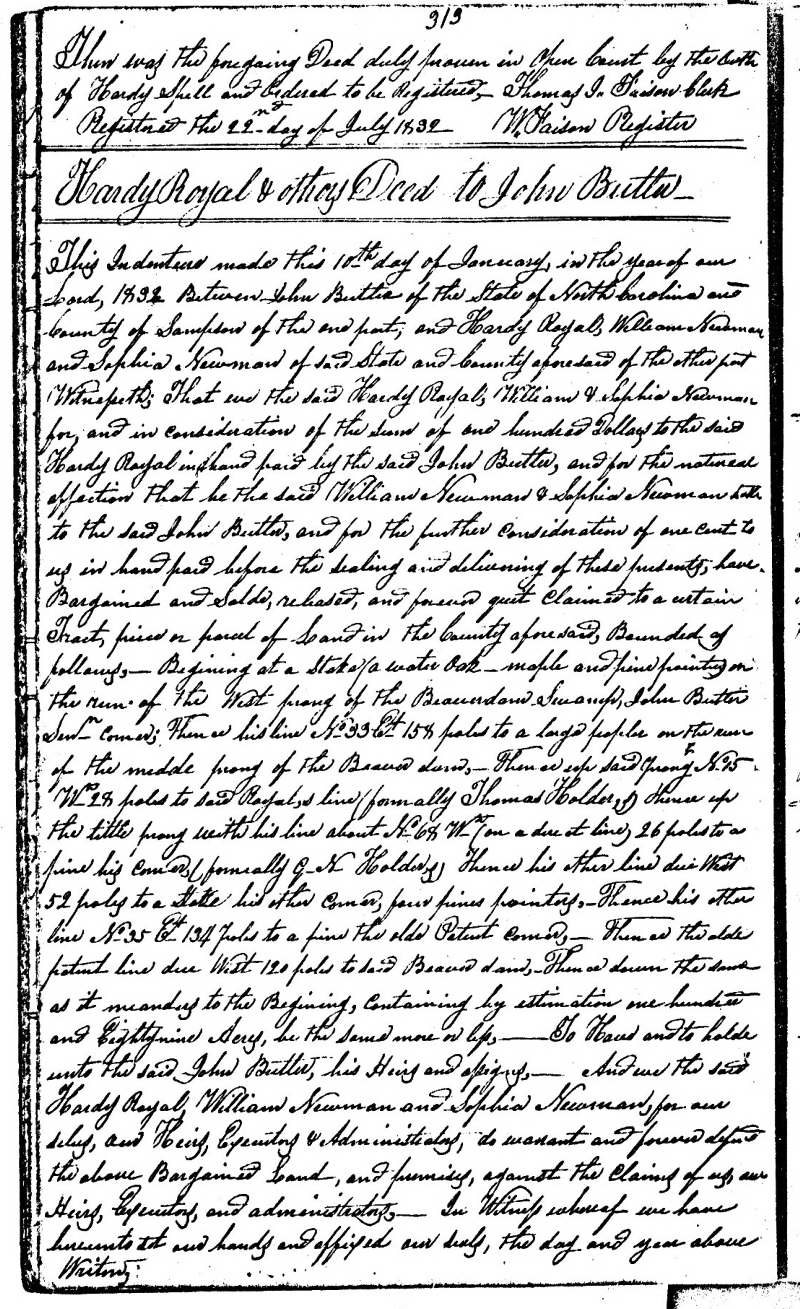 313
Then was the foregoing Deed duly proven in Open Court by the Oath
of Hardy Spell and Ordered to be Registered,– Thomas I. Faison Clerk
Registered the 22nd day of July 1832 W. Faison Register
Hardy Royal & others Deed to John Butler–
This Indenture made this 10th day of January, in the year of our
Lord, 1832 Between John Butler of the State of North Carolina and
County of Sampson of the one part; and Hardy Royal, William Newman
and Sophia Newman of said State and County aforesaid of the other part
Witnesseth; That we the said Hardy Royal, William & Sophia Newman
for, and in consideration of the sum of one hundred Dollars to the said
Hardy Royal in hand paid by the said John Butler, and for the natureal
affection that he the said William Newman & Sophia Newman hath
to the said John Butler, and for the further consideration of one cent to
us in hand paid before the sealing and delivening of these presents, have
Bargained and Solde, released, and forever quit Claimed to a certain
Tract, piece or parcel of Land in the County aforesaid, Bounded as
follows,– Begining at a Stake, a water Oak – maple and pine pointers on
the run of the West prong of the Beaverdam Swamp, John Butler
Senr corner; Thence his line No 33 Et 158 poles to a large popler on the run
of the middle prong of the Beaver dam,– Thence up said prong No 75
Wt 28 poles to said Royal,s line (formally Thomas Holder,s) thence up
the little prong with his line about No 68 Wt (on a direct line) 26 poles to a
pine his corner, (formeally G. N Holder,s) Thence his other line due West
52 poles to a Stake his other corner, four pines pointers,– Thence his other
line No 35 Et 134 poles to a pine the olde Patent corner,– Thence the olde
patent line due West 120 poles to said Beaver dam,– Thence down the same
as it meanders to the Begining, Containing by estimation one hundred
and Eightynine Acres, be the same more or less,– To Have and to holde
unto the said John Butler, his Heirs and assigns,– And we the said
Hardy Royal, William Newman and Sophia Newman, for our
selves, our Heirs, Executors & Administrators, do warrant and forever defend
the above Bargained Land, and premises, against the Claims of us, our
Heirs, Executors, and administrators,– In Witness whereof we have
hereunto set our hands and affixed our seals, the day and year above
Writen;